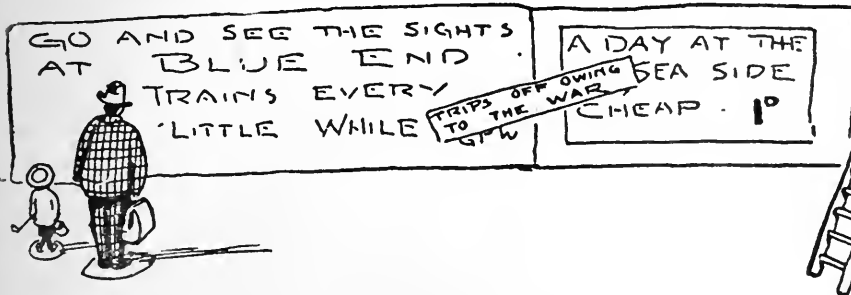 GO AND SEE THE SIGHTS
AT BLUE END.
TRAINS EVERY
LITTLE WHILE
TRIPS OFF OWING
TO THE WAR
A DAY AT THE
SEA SIDE
CHEAP. 1D